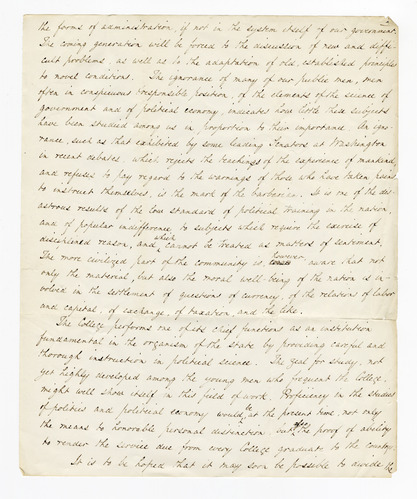 the forms of administration, if not in the system itself of our government.
The coming generation will be forced to the discussion of new and diffi-
cult problems, as well as to the adaptation of old, established principles
to novel conditions. The ignorance of many of our public men, men
often in conspicuous responsible position, of the elements of the science of
government and of political economy, indicates how little these subjects
have been studied among us in proportion to their importance. An igno-
rance, such as that exhibited by some leading Senators at Washington
in recent debates, which rejects the teachings of the experience of mankind,
and refuses to pay regard to the warnings of those who have taken pains
to instruct themselves, is the mark of the barbarian. It is one of the dis-
astrous results of the low standard of political training in the nation,
and of popular indifference to subjects which require the exercise of
disciplined reason, and which cannot be treated as matters of sentiment.
The more civilized part of the community is, however, aware that not
only the material, but also the moral well-being of the nation is in-
volved in the settlement of questions of currency, of the relations of labor
and capital, of exchange, of taxation, and the like.
The College performs one of its chief functions as an institution
fundamental in the organism of the state by providing careful and
thorough instruction in political science. The zeal for study, not
yet highly developed among the young men who frequent the College,
might well show itself in this field of work. Proficiency in the studies
of politics and political economy would be at the present time, not only
the means to honorable personal distinction, but the proof of ability
to render the service due from every College graduate to the country.
It is to be hoped that it may soon be possible to divide the